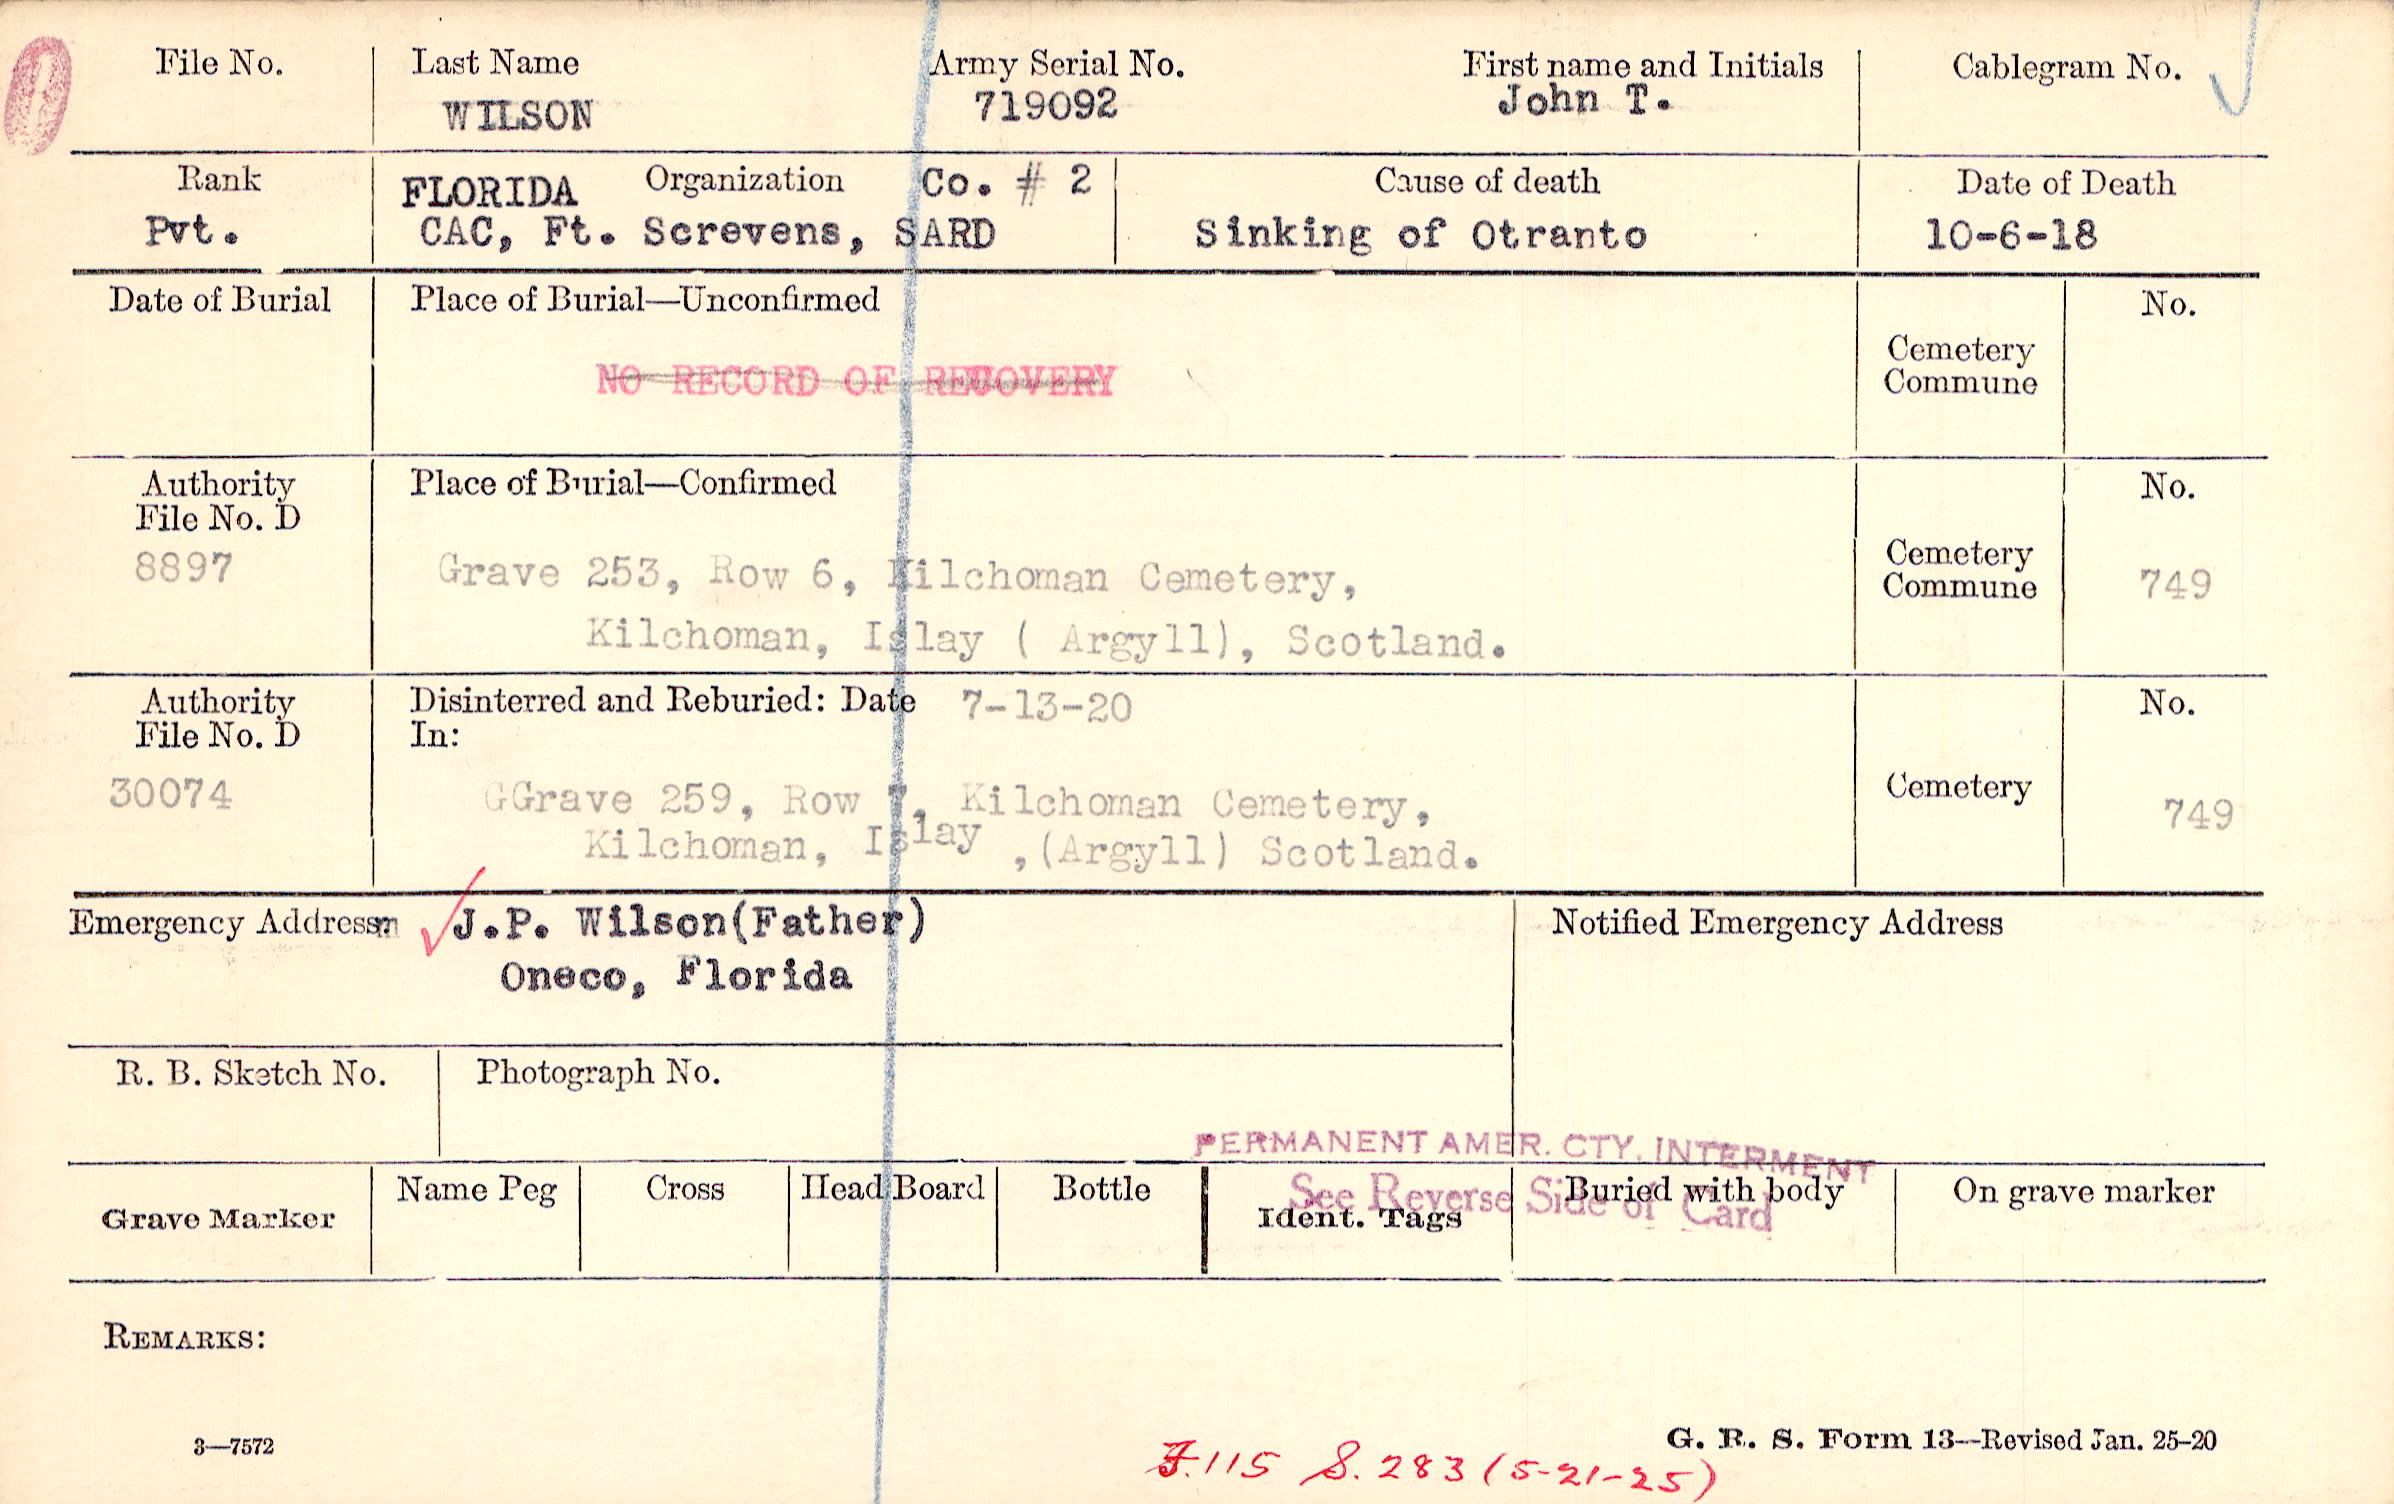 File No. Last Name Army Serial No. First name and Initials Cablegram No.
WILSON 719092 John T.
Rank FLORIDA Organization Co. # 2 Cause of death Date of Death
Pvt. CAC, Ft. Screvens, SARD Sinking of Otranto 10-6-18
Date of Burial Place of Burial—Unconfirmed No.
Cemetery
Commune
NO RECORD OF RECOVERY
Authority Place of Burial—Confirmed No.
File No. D
8897 Grave 253, Row 6, Kilchoman Cemetery, Cemetery
Commune 749
Kilchoman, Islay ( Argyll), Scotland.
Authority Disinterred and Reburied: Date 7-13-20 No.
File No. D In:
30074 GGrave 259, Row 7, Kilchoman Cemetery, Cemetery 749
Kilchoman, Islay ,(Argyll) Scotland.
Emergency Address J.P. Wilson(Father) Notified Emergency Address
Oneco, Florida
R. B. Sketch No. Photograph No.
PERMANENT AMER. CTY. INTERMENT
See Reverse Side of Card
Grave Marker Name Peg Cross Head Board Bottle Ident. Tags Buried with body On grave marker
REMARKS:
3—7572 G. R. S. Form 13—Revised Jan. 25-20
F.115 S. 283 (5-21-25)